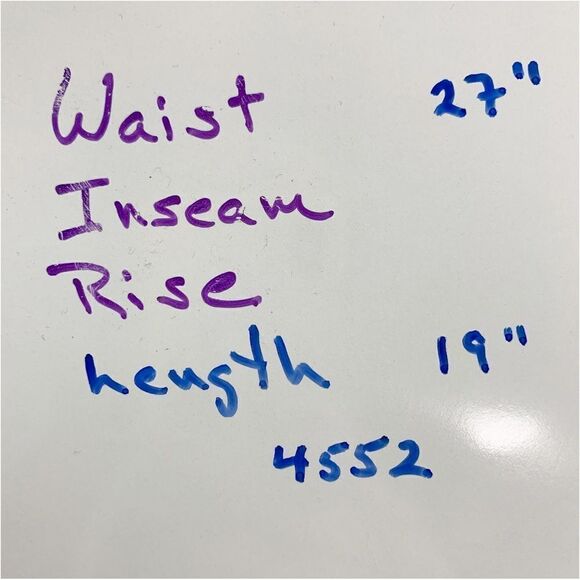 Waist 27"
Inseam
Rise
Length 19"
4552